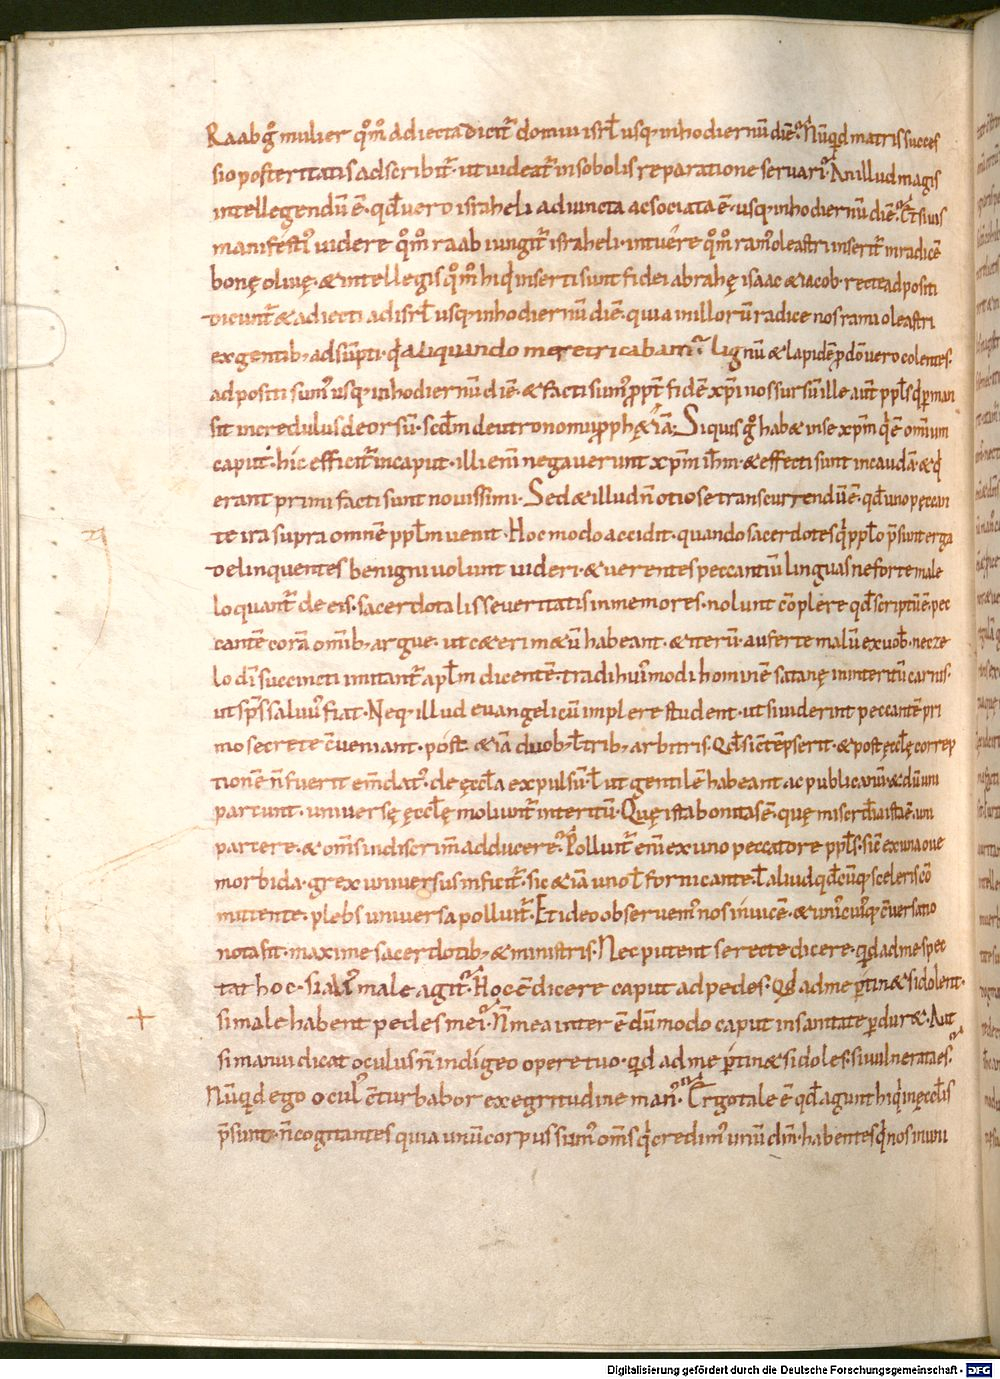 Raab g̊ mulier qm̄ adiecta dicit᷑ domui isrł usq; inhodiernū diē. Nūq̇d matris succes
sio posteritatis adscribit᷑. ut uideat᷑ insobolis reparatione seruari. An illud magis
intellegendū ē. qđ uero israheli adiuncta ac sociata ē. usq; inhodiernū diē. Et si uis
manifesti᷒ uidere qm̄ raab iungit᷑ israheli. intuere qm̄ ram᷒ oleastri inserit᷑ in radicē
bonę oliuę. & intellegis qm̄ hi q̇ inserti sunt fidei abrahę isaac & iacob. recte adpositi
dicunt᷑ & adiecti ad isrł usq; inhodiernū diē. quia in illorū radice nos rami oleastri
ex gentib; adsūpti. q̇ aliquando meretricabamur. lignū & lapidē ꝓ dō uero colentes.
adpositi sum᷒ usq; inhodiernū diē. & facti sum᷒ ꝓpt᷑ fidē xp̄i nos sursū ille aut̄ ppłs q̇ ꝑman
sit incredulus deorsū. scđm deutronomii ꝓph&iā. Siquis g̊ hab& in se xp̄m q̇ ē omnium
caput. hic efficit᷑ in caput. illi enī negauerunt xp̄m ih̄m. & effecti sunt in caudā. & q̇
erant primi facti sunt nouissimi. Sed & illud n̄ otiose transcurrendū ē. qđ uno peccan
te ira supra omnē ppłm uenit. Hoc modo accidit. quando sacerdotes q̇ ppło p̄sunt erga
delinquentes benigni uolunt uideri. & uerentes peccantiū linguas ne forte male
loquant᷑ de eis. sacerdotalis seueritatis inmemores. nolunt cōplere qđ scriptū ē. pec
cantē corā omīb; argue. ut c&eri m&ū habeant. & iterū. auferte malū ex uob̄. nec ze
lo dī succincti imitant᷑ apłm dicentē. tradi hui᷒modi hominē satanę in interitū carnis.
ut sp̄s saluus fiat. Neq; illud euangelicū implere student. ut si uiderint peccantē pri
mo secrete cōueniant. post &iā duob; ł trib; arbitris. Qđ si cōtēpserit. & post ęccłę correp
tionē n̄ fuerit emdat᷒. de ęccła expulsū ł ut gentilē habeant ac publicanū. & dū uni
parcunt. uniuersę ęccłę moliunt᷑ interitū. Quę ista bonitas ē. quę misericđia ista ē. uni
parcere. & om̄s in discrim̄ adducere. Polluit᷑ enī ex uno peccatore ppłs. sic ex una oue
morbida. grex uniuersus inficit᷑. sic &iā uno ł fornicante. ł aliud qđcūq; sceleris cō
mittente. plebs uniuersa polluit᷑. Et ideo obseruem᷒ nos inuicē. & unicuiq; cōuersatio
nota sit. maxime sacerdotib; & ministris. Nec putent se recte dicere. q̇d ad me spec
tat hoc. si ali᷒ male agit. Hoc ē dicere caput ad pedes. Qđ ad me ꝑtin& si dolent.
si male habent pedes mei. N̄ mea inter ē dūmodo caput in sanitate ꝑdur&. Aut
si manui dicat oculus n̄ indigeo opere tuo. q̇d ad me ꝑtin& si doles. si uulnerata es.
Nūq̇d ego ocul᷒ cōturbabor ex egritudine man᷒. Ergo tale ē qđ agunt hi q̇ in ęccłis
p̄sunt. n̄ cogitantes quia unū corpus sum᷒ om̄s q̇ credim᷒ unū dm̄. habentes q̇ nos in uni